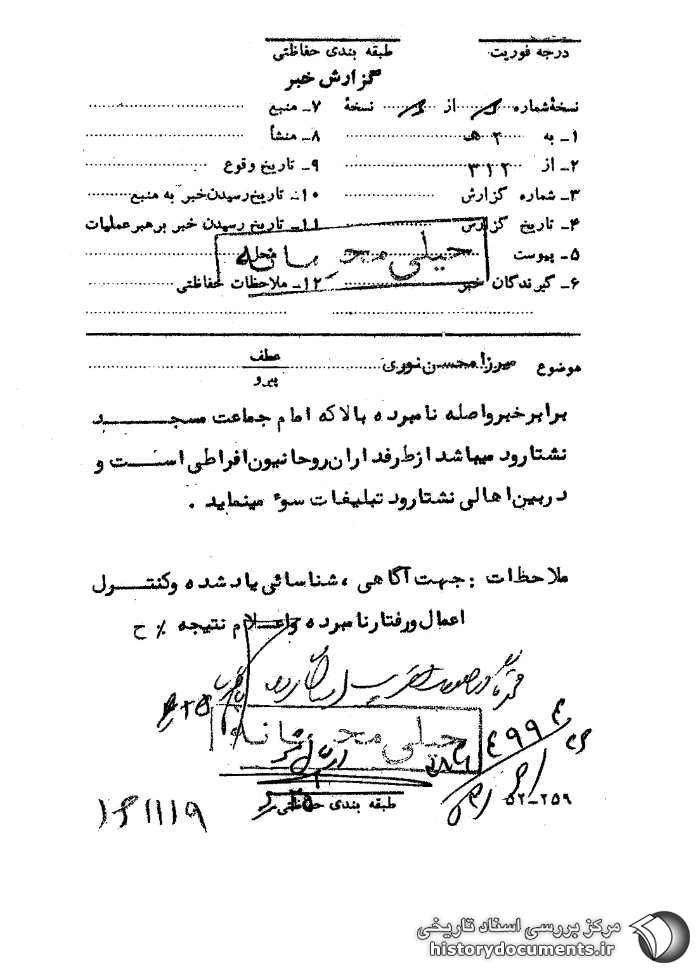 درجه فوریت
طبقه بندی حفاظتی
گزارش خبر
نسخهٔ شماره از نسخهٔ
۱ـ به ۳ هـ
۲ـ از ۳۱۲
۳ـ شماره گزارش
۴ـ تاریخ گزارش
۵ـ پیوست
۶ـ گیرندگان خبر
۷ـ منبع
۸ـ منشأ
۹ـ تاریخ وقوع
۱۰ـ تاریخ رسیدن خبر به منبع
۱۱ـ تاریخ رسیدن خبر برهبر عملیات
محل
۱۲ـ ملاحظات حفاظتی
خیلی محرمانه
موضوع میرزا محسن نوری
عطف
پیرو
برابر خبر واصله نامبرده بالا که امام جماعت مسجد
نشتارود میباشد از طرفداران روحانیون افراطی است و
در بین اهالی نشتارود تبلیغات سوء مینماید .
ملاحظات : جهت آگاهی ، شناسائی یاد شده و کنترل
اعمال و رفتار نامبرده و اعلام نتیجه ٪ ح
خیلی محرمانه
طبقه بندی حفاظتی
۵۲-۲۵۹
مرکز بررسی اسناد تاریخی
historydocuments.ir